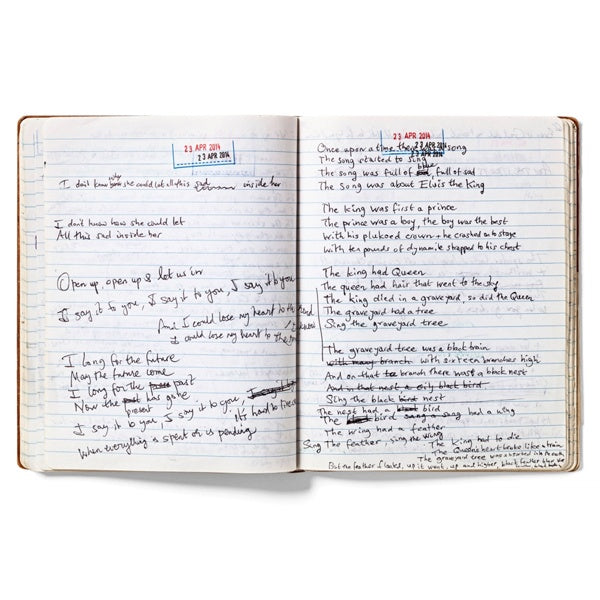 23 APR 2014
23 APR 2014
why
I don't know how she could let all this sad inside her
I don't know how she could let
All this sad inside her
Open up, open up & let us in
I say it to you, I say it to you, I say it to you
And I could lose my heart to the
I could lose my heart to the
I long for the future
May the future come
I long for the past
Now the past has gone
present
I say it to you, I say it to you,
It's hard to
When everything is spent or is pending
23 APR 2014
23 APR 2014
Once upon a time there was a song
The song started to sing
blue
The song was full of sad, full of sad
The song was about Elvis the King
The king was first a prince
The prince was a boy, the boy was the best
With his plukoed crown + he crashed onto stage
With ten pounds of dynamite strapped to his chest
The king had Queen
The queen had hair that went to the sky
The king died in a graveyard, so did the Queen
The graveyard had a tree
Sing the graveyard tree
The graveyard tree was a black train
with many branch with sixteen branches high
And on that branch there was a black nest
And in that nest a oily black bird
Sing the black bird nest
The nest had a bird
The bird had a wing
The wing had a feather
Sing The feather, sing the wing
The king had to die
The Queen's heart broke like a train
The graveyard tree was
But the feather floats, up it went, up and higher, black feather